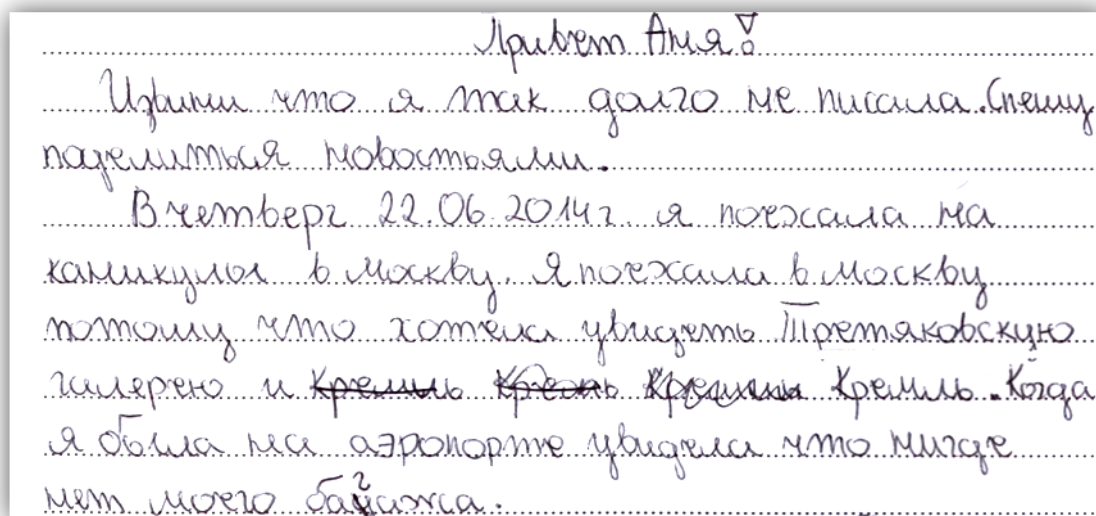 Привет Аня!
Извини что я так долго не писала. Спешу
поделиться новостьями.
В четверг 22.06.2014г. я поехала на
каникулы в москву. Я поехала в москву
потому что хотела увидеть Третяковскую
галерею и Кремль. Когда
я была на аэропорте увидела что нигде
нет моего багажа.